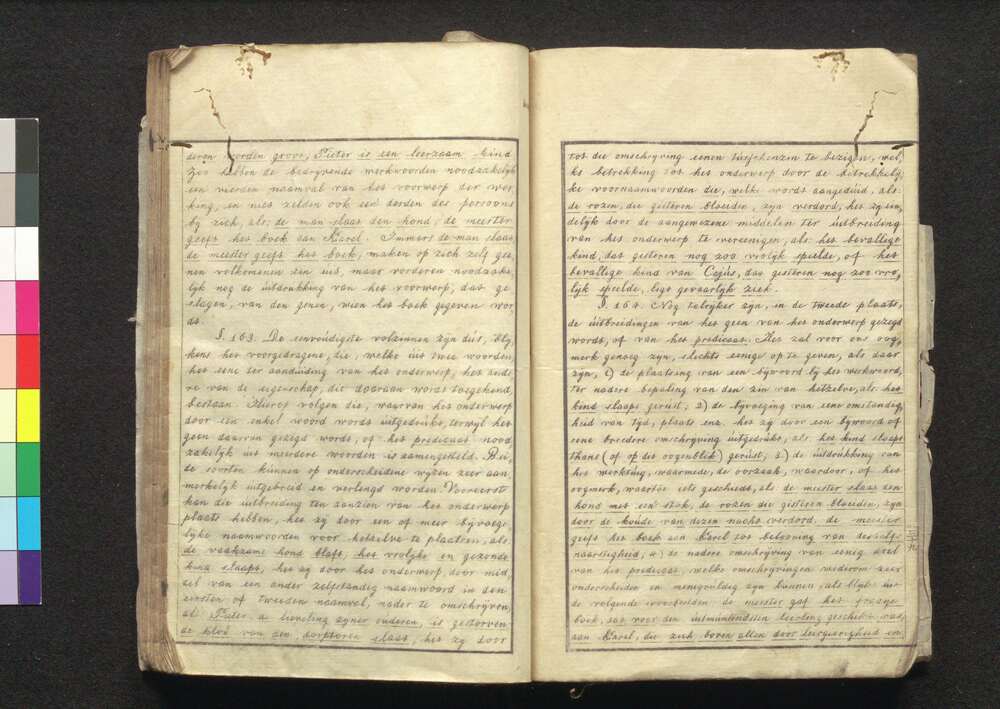 deren worden groot, Pieter is een leerzaam kind
Zoo hebben de bedrijvende werkwoorden noodzakelijk
een vierden naamval van het voorwerp der wer
king, en niet zelden ook een derden des persoons
bij zich, als: de man slaat den hond, de meester
geeft het boek aan Karel. Immers de man slaat,
de meester geeft het boek, maken op zich zelf gee,
nen volkomenen zin uit, maar vorderen noodzake
lijk nog de uitdrukking van het voorwerp, dat ge
slagen, van den genen, wien het boek gegeven wor,
dt.
§. 163. De eenvoudigste volzinnen zijn dus, blij,
kens het voorgedragene, die, welke uit twee woorden,
het eene ter aanduiding van het onderwerp, het ande
re van de eigenschap, die daaraan wordt toegekend,
bestaan. Hierop volgen die, waarvan het onderwerp
door een enkel woord wordt uitgedrukt, terwijl het
geen daarvan gezegd wordt, of het predicaat nood
zakelijk uit meerdere woorden is zamengesteld. Bei,
de soorten kunnen op onderscheidene wijzen zeer aan
merkelijk uitgebreid en verlengd worden. Vooreerst
kan die uitbreiding ten aanzien van het onderwerp
plaats hebben, het zij door een of meer bijvoege,
lijke naamwoorden voor hetzelve te plaatsen, als:
de waakzame hond blaft, het vrolijke en gezonde
kind slaapt, het zij door het onderwerp, door mid,
del van een ander zelfstandig naamwoord in den
eersten of tweeden naamval, nader te omschrijven,
als: Pieter, de lieveling zijner ouderen, is gestorven
de klok van den dorpstoren slaat, het zij door
tot die omschrijving eenen tusschenzin te bezigen, wel,
ke betrekking tot het onderwerp door de betrekkelij
ke voornaamwoorden die, welke wordt aangeduid, als:
de rozen, die gisteren bloeiden, zijn verdord, het zij ein,
delijk door de aangewezene middelen ter uitbreiding
van het onderwerp te vereenigen, als: het bevallige
kind, dat gisteren nog zoo vrolijk speelde, of het
bevallige kind van Cajus, dat gisteren nog zoo vro,
lijk speelde, ligt gevaarlijk ziek.
§. 164. Nog talrijker zijn, in de tweede plaats,
de uitbreidingen van het geen van het onderwerp gezegd
wordt, of van het predicaat. Het zal voor ons oog,
merk genoeg zijn, slechts eenige op te geven, als daar
zijn, 1) de plaatsing van een bijwoord bij het werkwoord,
ter nadere bepaling van den zin van hetzelve, als: het
kind slaapt gerust; 2) de bijvoeging van eene omstandig,
heid van tijd, plaats enz. het zij door een bijwoord of
eene breedere omschrijving uitgedrukt, als: het kind slaapt
thans (of op dit oogenblik) gerust, 3) de uitdrukking van
het werktuig, waarmede, de oorzaak, waardoor, of het
oogmerk, waartoe iets geschiedt, als: de meester slaat den
hond met een stok, de rozen die gisteren bloeiden, zijn
door de koude van dezen nacht verdord, de meester
geeft het boek aan Karel tot belooning van deszelfs
naarstigheid, 4) de nadere omschrijving van eenig deel
van het predicaat, welke omschrijvingen wederom zeer
onderscheiden en menigvuldig zijn kunnen, als blijkt uit
de volgende voorbeelden: de meester gaf het fraaije
boek, dat voor den uitmuntendsten leerling geschikt was,
aan Karel, die zich boven allen door leergierigheid en